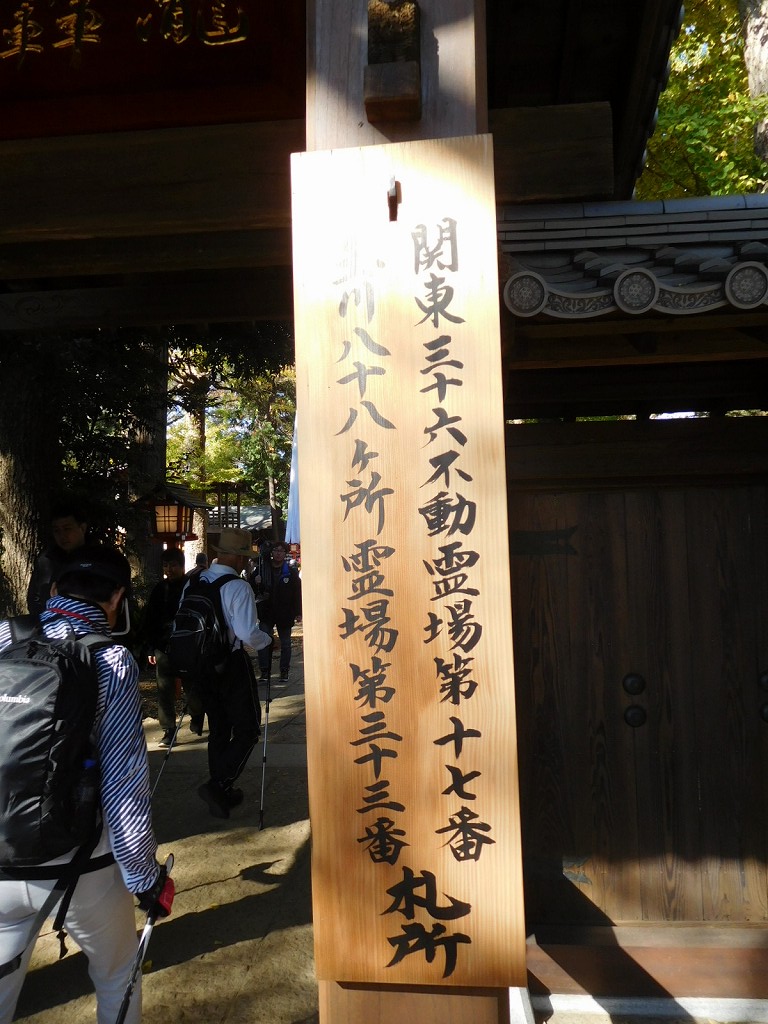 関東三十六不動霊場第十七番
川八十八ヶ所霊場第三十三番
札所
Columbia